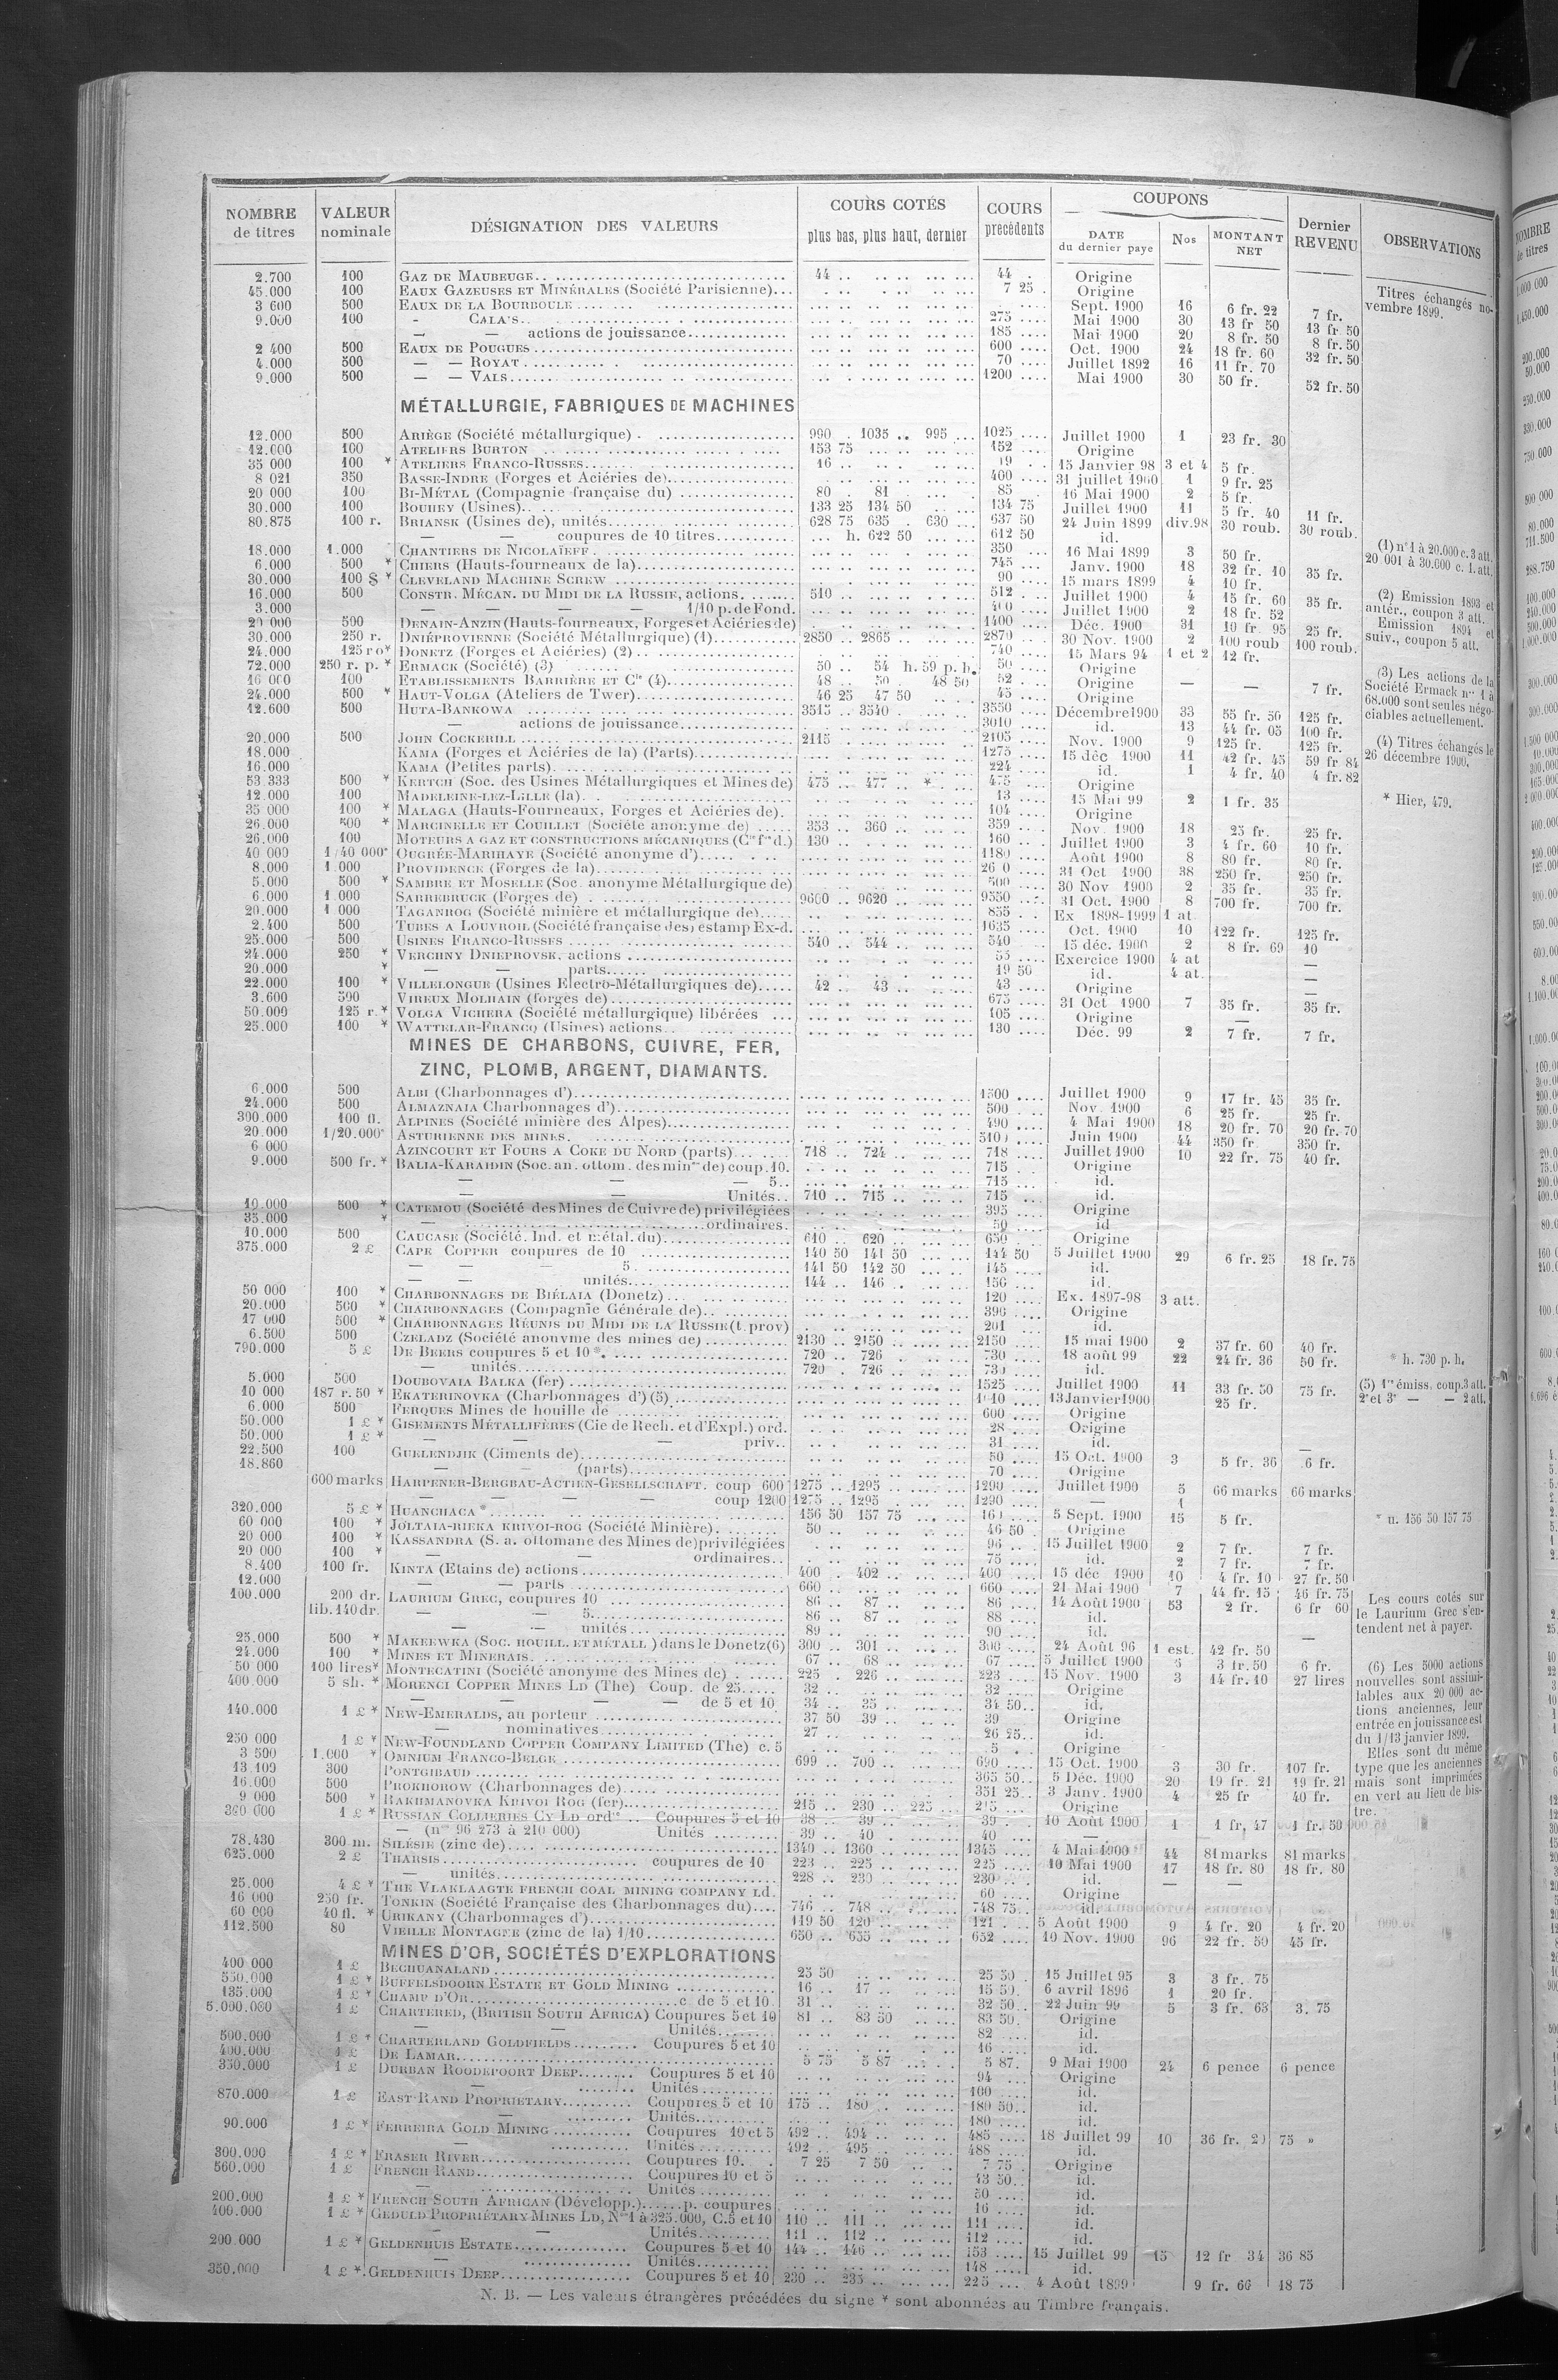 NOMBRE de titres | VALEUR nominale | DÉSIGNATION DES VALEURS | COURS COTÉS plus bas, plus haut, dernier | COURS précédents | COUPONS DATE du dernier paye | Nos | MONTANT NET | Dernier REVENU | OBSERVATIONS
2.700 100 GAZ DE MAUBEUGE 44 .. 44 . Origine
45.000 100 EAUX GAZEUSES ET MINÉRALES (Société Parisienne) 7 25 Origine Titres échangés no-
3 600 500 EAUX DE LA BOURBOULE Sept. 1900 16 6 fr. 22 7 fr. vembre 1899.
9.000 100 - CALA'S 275 Mai 1900 30 13 fr 50 13 fr. 50
— — actions de jouissance 185 Mai 1900 20 8 fr. 50 8 fr. 50
2 400 500 EAUX DE POUGUES 600 Oct. 1900 24 18 fr. 60 32 fr. 50
4.000 500 — — ROYAT 70 Juillet 1892 16 11 fr. 70
9.000 500 — — VALS 1200 Mai 1900 30 50 fr. 52 fr. 50
MÉTALLURGIE, FABRIQUES DE MACHINES
12.000 500 ARIÈGE (Société métallurgique) 990 . 1035 .. 995 1025 Juillet 1900 1 23 fr. 30
12.000 100 ATELIERS BURTON 153 75 152 Origine
35 000 100 * ATELIERS FRANCO-RUSSES 16 19 15 Janvier 98 3 et 4 5 fr.
8 021 350 BASSE-INDRE (Forges et Aciéries de) 400 31 juillet 1900 1 9 fr. 25
20 000 100 BI-MÉTAL (Compagnie française du) 80 . 81 85 16 Mai 1900 2 5 fr.
30.000 100 BOUHEY (Usines) 133 25 134 50 134 75 Juillet 1900 11 5 fr. 40 11 fr.
80.875 100 r. BRIANSK (Usines de), unités 628 75 635 . 630 637 50 24 Juin 1899 div.98 30 roub. 30 roub.
— — coupures de 10 titres h. 622 50 612 50 id.
18.000 1.000 CHANTIERS DE NICOLAÏEFF 350 16 Mai 1899 3 50 fr. (1) nº 1 à 20.000 c. 3 att.
6.000 500 * CHIERS (Hauts-fourneaux de la) 745 Janv. 1900 18 32 fr. 10 35 fr. 20 001 à 30.000 c. 1. att.
30.000 100 $ * CLEVELAND MACHINE SCREW 90 15 mars 1899 4 10 fr.
16.000 500 CONSTR. MÉCAN. DU MIDI DE LA RUSSIE, actions 510 512 Juillet 1900 4 15 fr. 60 35 fr. (2) Emission 1893 et
3.000 — — — — 1/10 p. de Fond. 400 Juillet 1900 2 18 fr. 52 antér., coupon 3 att.
20 000 500 DENAIN-ANZIN (Hauts-fourneaux, Forges et Aciéries de) 1400 Déc. 1900 31 19 fr. 95 25 fr. Emission 1894 et
30.000 250 r. DNIÉPROVIENNE (Société Métallurgique) (1) 2850 .. 2865 2870 30 Nov. 1900 2 100 roub 100 roub. suiv., coupon 5 att.
24.000 125 ro* DONETZ (Forges et Aciéries) (2) 740 15 Mars 94 1 et 2 12 fr.
72.000 250 r. p. * ERMACK (Société) (3) 50 .. 54 h. 59 p. h. 50 Origine (3) Les actions de la
16 000 100 ETABLISSEMENTS BARRIÈRE ET Cie (4) 48 .. 50 . 48 50 52 Origine — — 7 fr. Société Ermack nos 1 à
24.000 500 * HAUT-VOLGA (Ateliers de Twer) 46 25 47 50 45 Origine 68.000 sont seules négo-
12.600 500 HUTA-BANKOWA 3515 .. 3540 3550 Décembre 1900 33 55 fr. 50 125 fr. ciables actuellement.
— actions de jouissance 3010 id. 13 44 fr. 05 100 fr.
20.000 500 JOHN COCKERILL 2115 2105 Nov. 1900 9 125 fr. 125 fr. (4) Titres échangés le
18.000 KAMA (Forges et Aciéries de la) (Parts) 1275 15 déc 1900 11 42 fr. 45 59 fr 84 26 décembre 1900.
16.000 KAMA (Petites parts) 224 id. 1 4 fr. 40 4 fr. 82
53 333 500 * KERTCH (Soc. des Usines Métallurgiques et Mines de) 475 .. 477 .. * 475 Origine
12 000 100 MADELEINE-LEZ-LILLE (la) 13 15 Mai 99 2 1 fr. 35 * Hier, 479.
35 000 100 * MALAGA (Hauts-Fourneaux, Forges et Aciéries de) 104 Origine
26.000 500 * MARCINELLE ET COUILLET (Société anonyme de) 353 .. 360 359 Nov. 1900 18 25 fr. 25 fr.
26.000 100 MOTEURS A GAZ ET CONSTRUCTIONS MÉCANIQUES 130 160 Juillet 1900 3 4 fr. 60 10 fr.
40 000 1/40 000e OUGRÉE-MARIHAYE (Société anonyme d') 1180 Août 1900 8 80 fr. 80 fr.
8.000 1.000 PROVIDENCE (Forges de la) 26 0 31 Oct 1900 38 250 fr. 250 fr.
5.000 500 * SAMBRE ET MOSELLE (Soc. anonyme Métallurgique de) 500 30 Nov 1900 2 35 fr. 35 fr.
6.000 1.000 SARREBRUCK (Forges de) 9600 .. 9620 9550 31 Oct. 1900 8 700 fr. 700 fr.
20.000 1 000 TAGANROG (Société minière et métallurgique de) 855 Ex 1898-1999 1 at
2.400 500 TUBES A LOUVROIL (Société française des) estamp Ex-d. 1635 Oct. 1900 10 122 fr. 125 fr.
25.000 500 USINES FRANCO-RUSSES 540 .. 544 540 15 déc. 1900 2 8 fr. 69 10
24.000 250 * VERCHNY DNIEPROVSK, actions 53 Exercice 1900 4 at —
20.000 * — — parts 19 50 id. 4 at. —
22.000 100 * VILLELONGUE (Usines Electro-Métallurgiques de) 42 . 43 43 Origine —
3.600 500 VIREUX MOLHAIN (forges de) 675 31 Oct 1900 7 35 fr. 35 fr.
50.000 125 r. * VOLGA VICHERA (Société métallurgique) libérées 105 Origine —
25.000 100 * WATTELAR-FRANCQ (Usines) actions 130 Déc. 99 2 7 fr. 7 fr.
MINES DE CHARBONS, CUIVRE, FER,
ZINC, PLOMB, ARGENT, DIAMANTS.
6.000 500 ALBI (Charbonnages d') 1500 Juillet 1900 9 17 fr. 45 35 fr.
24.000 500 ALMAZNAIA Charbonnages d') 500 Nov. 1900 6 25 fr. 25 fr.
300.000 100 fl. ALPINES (Société minière des Alpes) 490 4 Mai 1900 18 20 fr. 70 20 fr. 70
20.000 1/20.000e ASTURIENNE DES MINES Juin 1900 44 350 fr 350 fr.
6 000 AZINCOURT ET FOURS A COKE DU NORD (parts) 718 .. 724 718 Juillet 1900 10 22 fr. 75 40 fr.
9.000 500 fr. * BALIA-KARAIDIN (Soc. an. ottom. des mines de) coup. 10. 715 Origine
— — — 5 715 id.
— — Unités 710 .. 715 715 id.
10.000 500 * CATEMOU (Société des Mines de Cuivre de) privilégiées 395 Origine
35.000 * — ordinaires 50 id
10.000 500 CAUCASE (Société. Ind. et métal. du) 610 . 620 650 Origine
375.000 2 £ CAPE COPPER coupures de 10 140 50 141 50 144 50 5 Juillet 1900 29 6 fr. 25 18 fr. 75
— — — 5 141 50 142 50 145 id.
— — unités 144 .. 146 150 id.
50 000 100 * CHARBONNAGES DE BIÉLAIA (Donetz) 120 Ex. 1897-98 3 att.
20.000 500 * CHARBONNAGES (Compagnie Générale de) 390 Origine
17 000 500 * CHARBONNAGES RÉUNIS DU MIDI DE LA RUSSIE (t. prov) 201 id.
6.500 500 CZELADZ (Société anonyme des mines de) 2130 .. 2150 2150 15 mai 1900 2 37 fr. 60 40 fr.
790.000 5 £ DE BEERS coupures 5 et 10 * 720 .. 726 730 18 août 99 22 24 fr. 36 50 fr. * h. 730 p. h.
— unités 720 . 726 730 id.
5.000 500 DOUBOVAIA BALKA (fer) 1525 Juillet 1900 11 33 fr. 50 75 fr. (5) 1re émiss. coup. 3 att.
10 000 187 r. 50 * EKATERINOVKA (Charbonnages d') (5) 13 Janvier 1900 25 fr. 2e et 3e — — 2 att.
6.000 500 FERQUES Mines de houille de 600 Origine
50.000 1 £ * GISEMENTS MÉTALLIFÈRES (Cie de Rech. et d'Expl.) ord. 28 Origine
50.000 1 £ * — — — priv. 31 id.
22.500 100 GUELENDJIK (Ciments de) 50 15 Oct. 1900 3 5 fr. 36 6 fr.
18.860 — (parts) 70 Origine
600 marks HARPENER-BERGBAU-ACTIEN-GESELLSCHAFT. coup 600 1275 .. 1295 1290 Juillet 1900 5 66 marks 66 marks
— — — coup 1200 1275 .. 1295 1290 — 1
320.000 5 £ * HUANCHACA * 156 50 157 75 160 5 Sept. 1900 15 5 fr. * u. 156 50 157 75
60 000 100 * JOLTAIA-RIEKA KRIVOI-ROG (Société Minière) 50 46 50 Origine
20 000 100 * KASSANDRA (S. a. ottomane des Mines de) privilégiées 96 15 Juillet 1900 2 7 fr. 7 fr.
20 000 100 * — — ordinaires 75 id. 2 7 fr. 7 fr.
8.400 100 fr. KINTA (Etains de) actions 400 . 402 400 15 déc 1900 10 4 fr. 10 27 fr. 50
12.000 — — parts 660 660 21 Mai 1900 7 44 fr. 15 46 fr. 75
100.000 200 dr. LAURIUM GREC, coupures 10 86 .. 87 86 14 Août 1900 53 2 fr. 6 fr 60 Les cours cotés sur
lib. 140 dr. — — 5 86 .. 87 88 id. le Laurium Grec s'en-
— — unités 89 90 id. tendent net à payer.
25.000 500 * MAKEEWKA (SOC. HOUILL. ET MÉTALL) dans le Donetz (6) 300 .. 301 300 24 Août 96 1 est. 42 fr. 50 —
24.000 100 * MINES ET MINERAIS 67 .. 68 67 5 Juillet 1900 3 fr. 50 6 fr. (6) Les 5000 actions
50 000 100 lires * MONTECATINI (Société anonyme des Mines de) 225 . 226 223 15 Nov. 1900 3 14 fr. 10 27 lires nouvelles sont assimi-
400.000 5 sh. * MORENCI COPPER MINES LD (The) Coup. de 25 32 32 Origine lables aux 20 000 ac-
— — — — de 5 et 10 34 .. 35 34 50 id. tions anciennes, leur
140.000 1 £ * NEW-EMERALDS, au porteur 37 50 39 39 Origine entrée en jouissance est
— nominatives 27 26 25 id. du 1/13 janvier 1899.
250 000 1 £ * NEW-FOUNDLAND COPPER COMPANY LIMITED (The) c. 5 5 Origine Elles sont du même
3 500 1.000 * OMNIUM FRANCO-BELGE 699 .. 700 690 15 Oct. 1900 3 30 fr. 107 fr. type que les anciennes
13 109 300 PONTGIBAUD 365 50 5 Déc. 1900 20 19 fr. 21 19 fr. 21 mais sont imprimées
16.000 500 PROKHOROW (Charbonnages de) 351 25 3 Janv. 1900 4 25 fr 40 fr. en vert au lieu de bis-
9 000 500 * RAKHMANOVKA KRIVOI ROG (fer) 215 .. 230 .. 225 Origine tre.
360 000 1 £ * RUSSIAN COLLIERIES CY LD ordre Coupures 5 et 10 38 .. 39 39 10 Août 1900 1 1 fr, 47 1 fr. 50
— (nos 96 273 à 210 000) Unités 39 .. 40 40 —
78.430 300 m. SILÉSIE (zinc de) 1340 .. 1360 1345 4 Mai 1900 44 81 marks 81 marks
625.000 2 £ THARSIS coupures de 10 223 .. 225 225 10 Mai 1900 17 18 fr. 80 18 fr. 80
— unités 228 .. 230 230 id. — —
25.000 4 £ * THE VLAKLAAGTE FRENCH COAL MINING COMPANY Ld. 60 Origine
16 000 250 fr. TONKIN (Société Française des Charbonnages du) 746 .. 748 748 75 id.
60 000 40 fl. * URIKANY (Charbonnages d') 119 50 120 121 5 Août 1900 9 4 fr. 20 4 fr. 20
112.500 80 VIEILLE MONTAGNE (zinc de la) 1/10 650 .. 655 652 10 Nov. 1900 96 22 fr. 50 45 fr.
MINES D'OR, SOCIÉTÉS D'EXPLORATIONS
400 000 1 £ BECHUANALAND 25 50 25 50 15 Juillet 95 3 3 fr. 75
550.000 1 £ * BUFFELSDOORN ESTATE ET GOLD MINING 16 .. 17 15 50 6 avril 1896 1 20 fr.
135.000 1 £ * CHAMP D'OR c. de 5 et 10 31 32 50 22 Juin 99 5 3 fr. 63 3. 75
5.000.000 1 £ CHARTERED, (BRITISH SOUTH AFRICA) Coupures 5 et 10 81 .. 83 50 83 50 Origine
— — Unités 82 id.
500.000 1 £ * CHARTERLAND GOLDFIELDS Coupures 5 et 10 16 id.
400.000 1 £ DE LAMAR 5 75 5 87 5 87 9 Mai 1900 24 6 pence 6 pence
350.000 1 £ DURBAN ROODEPOORT DEEP Coupures 5 et 10 94 Origine
— Unités 100 id.
870.000 1 £ EAST-RAND PROPRIETARY Coupures 5 et 10 175 .. 180 180 50 id.
— Unités 180 id.
90.000 1 £ * FERREIRA GOLD MINING Coupures 10 et 5 492 .. 494 485 18 Juillet 99 10 36 fr. 75 »
— Unités 492 .. 495 488 id.
300.000 1 £ * FRASER RIVER Coupures 10. 7 25 7 50 7 75 Origine
560.000 1 £ FRENCH RAND Coupures 10 et 5 43 50 id.
— Unités 50 id.
200.000 1 £ * FRENCH SOUTH AFRICAN (Développ.) p. coupures 16 id.
400.000 1 £ * GEDULD PROPRIÉTARY MINES LD, Nos 1 à 325.000, C. 5 et 10 110 .. 111 111 id.
— — Unités 111 .. 112 112 id.
200 000 1 £ * GELDENHUIS ESTATE Coupures 5 et 10 144 .. 146 153 15 Juillet 99 15 12 fr 34 36 85
— Unités 148 id.
350.000 1 £ * GELDENHUIS DEEP Coupures 5 et 10 230 .. 235 225 4 Août 1899 9 fr. 66 18 75
N. B. — Les valeurs étrangères précédées du signe * sont abonnées au Timbre français.